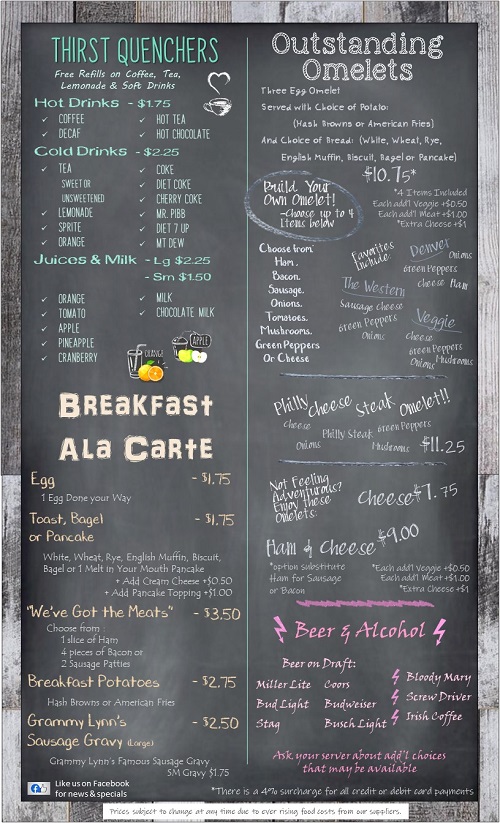 THIRST QUENCHERS
Free Refills on Coffee, Tea,
Lemonade & Soft Drinks
Hot Drinks - $1.75
✓ COFFEE
✓ DECAF
✓ HOT TEA
✓ HOT CHOCOLATE
Cold Drinks - $2.25
✓ TEA
SWEET OR
UNSWEETENED
✓ LEMONADE
✓ SPRITE
✓ ORANGE
✓ COKE
✓ DIET COKE
✓ CHERRY COKE
✓ MR. PIBB
✓ DIET 7 UP
✓ MT DEW
Juices & Milk - Lg $2.25
- Sm $1.50
✓ ORANGE
✓ TOMATO
✓ APPLE
✓ PINEAPPLE
✓ CRANBERRY
✓ MILK
✓ CHOCOLATE MILK
ORANGE
APPLE
Breakfast
Ala Carte
Egg - $1.75
1 Egg Done your Way
Toast, Bagel - $1.75
or Pancake
White, Wheat, Rye, English Muffin, Biscuit,
Bagel or 1 Melt in Your Mouth Pancake
+ Add Cream Cheese +$0.50
+ Add Pancake Topping +$1.00
"We've Got the Meats" - $3.50
Choose from :
1 slice of Ham
4 pieces of Bacon or
2 Sausage Patties
Breakfast Potatoes - $2.75
Hash Browns or American Fries
Grammy Lynn's - $2.50
Sausage Gravy (Large)
Grammy Lynn's Famous Sausage Gravy
SM Gravy $1.75
Like us on Facebook
for news & specials
Outstanding
Omelets
Three Egg Omelet
Served with Choice of Potato:
(Hash Browns or American Fries)
And Choice of Bread: (White, Wheat, Rye,
English Muffin, Biscuit, Bagel or Pancake)
$10.75*
Build Your
Own Omelet!
-Choose up to 4
Items below
*4 Items Included
Each add'l Veggie +$0.50
Each add'l Meat +$1.00
*Extra Cheese +$1
Choose from:
Ham,
Bacon,
Sausage,
Onions,
Tomatoes,
Mushrooms,
Green Peppers
Or Cheese
Favorites
Include:
Denver
Onions
Green Peppers
Cheese Ham
The Western
Sausage Cheese
Green Peppers
Onions
Veggie
Cheese
Green Peppers
Onions Mushrooms
Philly Cheese Steak Omelet!!
Cheese
Onions
Philly Steak
Green Peppers
Mushrooms
$11.25
Not Feeling
Adventurous?
Enjoy these
Omelets:
Cheese $7.75
Ham & Cheese $9.00
*option substitute
Ham for Sausage
or Bacon
*Each add'l Veggie +$0.50
Each add'l Meat +$1.00
*Extra Cheese +$1
Beer & Alcohol
Beer on Draft:
Miller Lite
Bud Light
Stag
Coors
Budweiser
Busch Light
Bloody Mary
Screw Driver
Irish Coffee
Ask your server about add'l choices
that may be available
*There is a 4% surcharge for all credit or debit card payments
Prices subject to change at any time due to ever rising food costs from our suppliers.